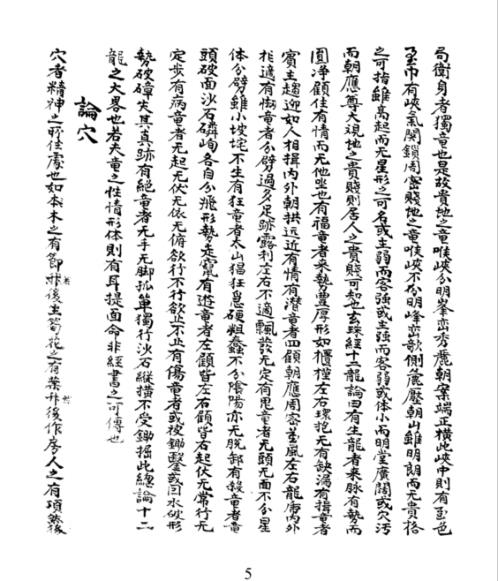 局衛身者獨竜也是故貴地之竜唯峽分明峯峦秀麗朝案端正橫此峽中則有玉色
玉巾有峽氣関鎖周密賤地之竜唯峽不分明峰峦欹側麁朝山雖明朗而无貴格
之可指雖高起而无星形之可名或主弱而客強或主強而客弱或体小而明堂廣闊或欠污
而朝應尊大視地之貴賤則居人之貴賤可知也玄珠経十二龍論曰有生龍者来脉有勢而
圓淨顧住有情而无他也有福竜者来勢豊厚形如櫃左右環抱无有缺漏有揖竜者
賓主趨迎如人相揖内外朝拱远近有情有潛竜者四顧朝應周密蔵風左右龍虎内外
相適有怖竜者分劈過多足跡露利左右不適飄散无定有鬼竜者无頭无面不分星
体分劈雖小坡垞不生有狂竜者太山猖狂硬粗蠢不分隂陽亦无脱卸有殺竜者竜
頭破面沙石磷峋各自分飛形勢走竄有遊竜者左顧皆左右顧皆右起伏无常行无
定步有病竜者无起无伏无依无俯欲行不行欲止不止有傷竜者或被鋤鑿或因水破形
勢破碎失其真跡有絕竜者无手无脚孤單獨行沙石縱橫不受鋤掘此縂論十二
龍之大畧也若夫竜之性情形体則有耳提面命非経書之可傳也
論穴
穴者精神之所住處也如木之有節非後生筍花之有葉非後作房人之有項
5